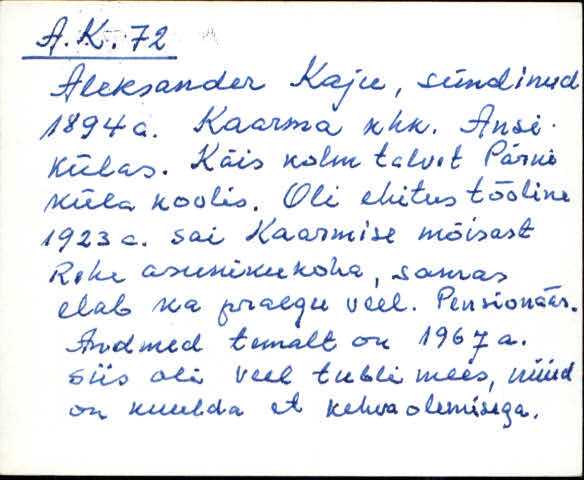 A.K. 72
Aleksander Kaju, sündinud
1894 a. Kaarma khk. Ansi
külas. Käis kolm talvet Pärni
küla koolis. Oli ehitustööline
1923 a. sai Kaarmise mõisast
Rehe asunikukoha, samas
elab ka praegu veel. Pensionäär.
Andmed temalt on 1967 a.
siis oli veel tubli mees, nüüd
on kuulda et kehva olemisega.